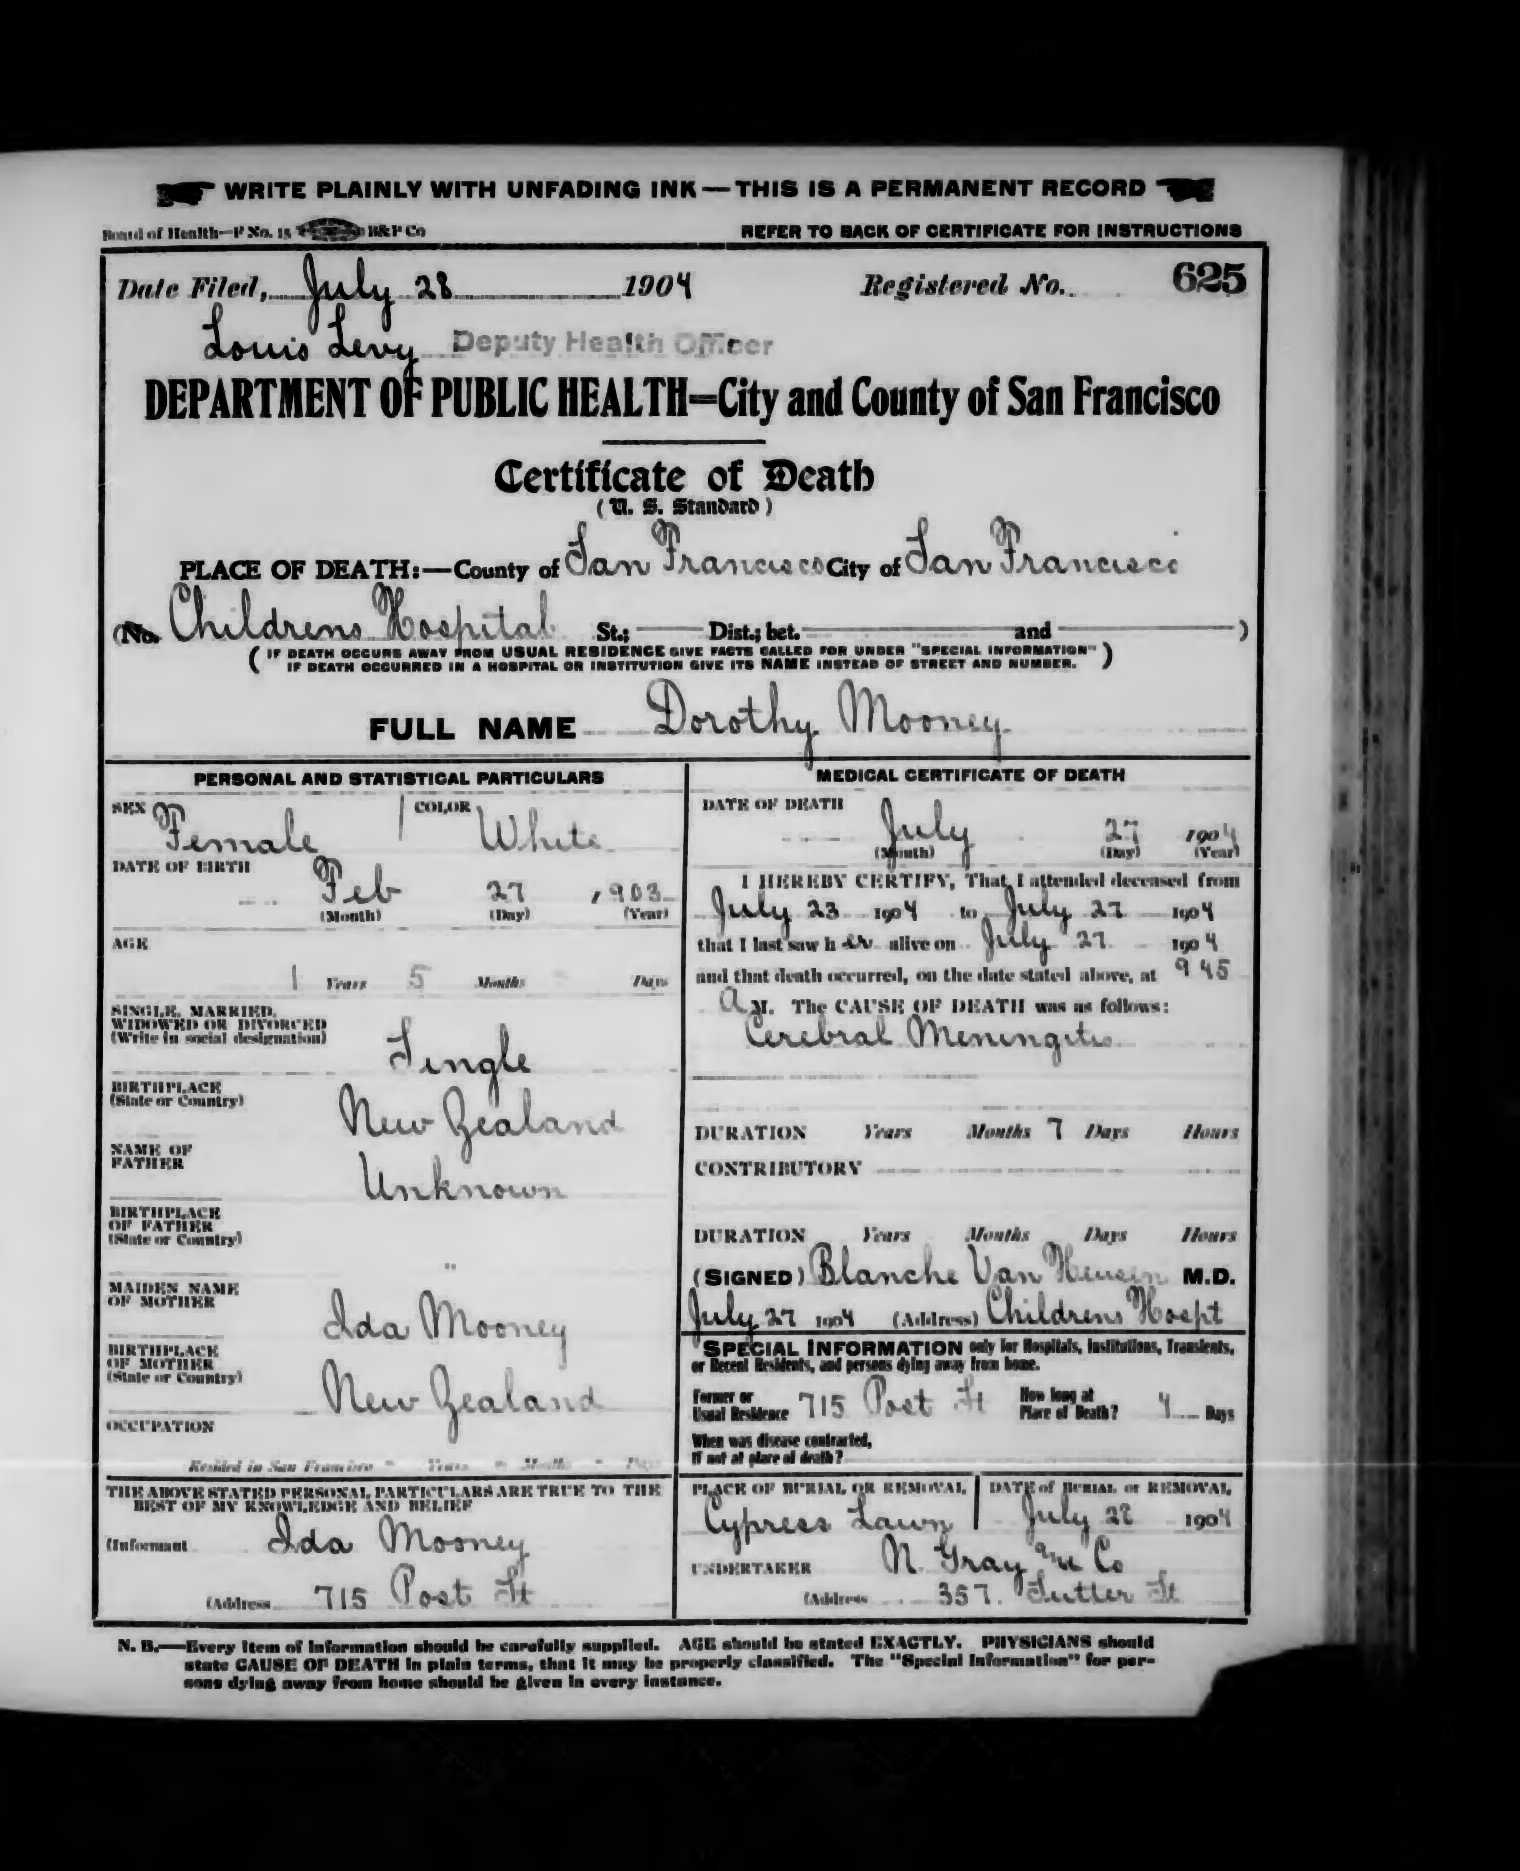 WRITE PLAINLY WITH UNFADING INK—THIS IS A PERMANENT RECORD
Board of Health—F No. 15 B&P Co REFER TO BACK OF CERTIFICATE FOR INSTRUCTIONS
Date Filed, July 28 1904 Registered No. 625
Louis Levy Deputy Health Officer
DEPARTMENT OF PUBLIC HEALTH=City and County of San Francisco
Certificate of Death
(U. S. Standard)
PLACE OF DEATH:—County of San Francisco City of San Francisco
(No. Childrens Hospital St.; Dist.; bet. and )
(IF DEATH OCCURS AWAY FROM USUAL RESIDENCE GIVE FACTS CALLED FOR UNDER "SPECIAL INFORMATION"
IF DEATH OCCURRED IN A HOSPITAL OR INSTITUTION GIVE ITS NAME INSTEAD OF STREET AND NUMBER.)
FULL NAME Dorothy Mooney
PERSONAL AND STATISTICAL PARTICULARS
SEX Female COLOR White
DATE OF BIRTH
Feb 27 1903
(Month) (Day) (Year)
AGE
1 Years 5 Months Days
SINGLE, MARRIED,
WIDOWED OR DIVORCED
(Write in social designation)
Single
BIRTHPLACE
(State or Country)
New Zealand
NAME OF
FATHER
Unknown
BIRTHPLACE
OF FATHER
(State or Country)
"
MAIDEN NAME
OF MOTHER
Ida Mooney
BIRTHPLACE
OF MOTHER
(State or Country)
New Zealand
OCCUPATION
Resided in San Francisco - Years - Months - Days
THE ABOVE STATED PERSONAL PARTICULARS ARE TRUE TO THE
BEST OF MY KNOWLEDGE AND BELIEF
(Informant Ida Mooney
(Address 715 Post St
MEDICAL CERTIFICATE OF DEATH
DATE OF DEATH
July 27 1904
(Month) (Day) (Year)
I HEREBY CERTIFY, That I attended deceased from
July 23 1904 to July 27 1904
that I last saw h er alive on July 27 1904
and that death occurred, on the date stated above, at 9 45
A M. The CAUSE OF DEATH was as follows:
Cerebral Meningitis
DURATION Years Months 7 Days Hours
CONTRIBUTORY
DURATION Years Months Days Hours
(SIGNED) Blanche Van Heusen M.D.
July 27 1904 (Address) Childrens Hospt
SPECIAL INFORMATION only for Hospitals, Institutions, Transients,
or Recent Residents, and persons dying away from home.
Former or
Usual Residence 715 Post St
How long at
Place of Death? 4 Days
When was disease contracted,
If not at place of death?
PLACE OF BURIAL OR REMOVAL
Cypress Lawn
DATE of BURIAL or REMOVAL
July 28 1904
UNDERTAKER N. Gray and Co
(Address 357 Sutter St
N. B.—Every item of information should be carefully supplied. AGE should be stated EXACTLY. PHYSICIANS should
state CAUSE OF DEATH in plain terms, that it may be properly classified. The "Special Information" for per-
sons dying away from home should be given in every instance.